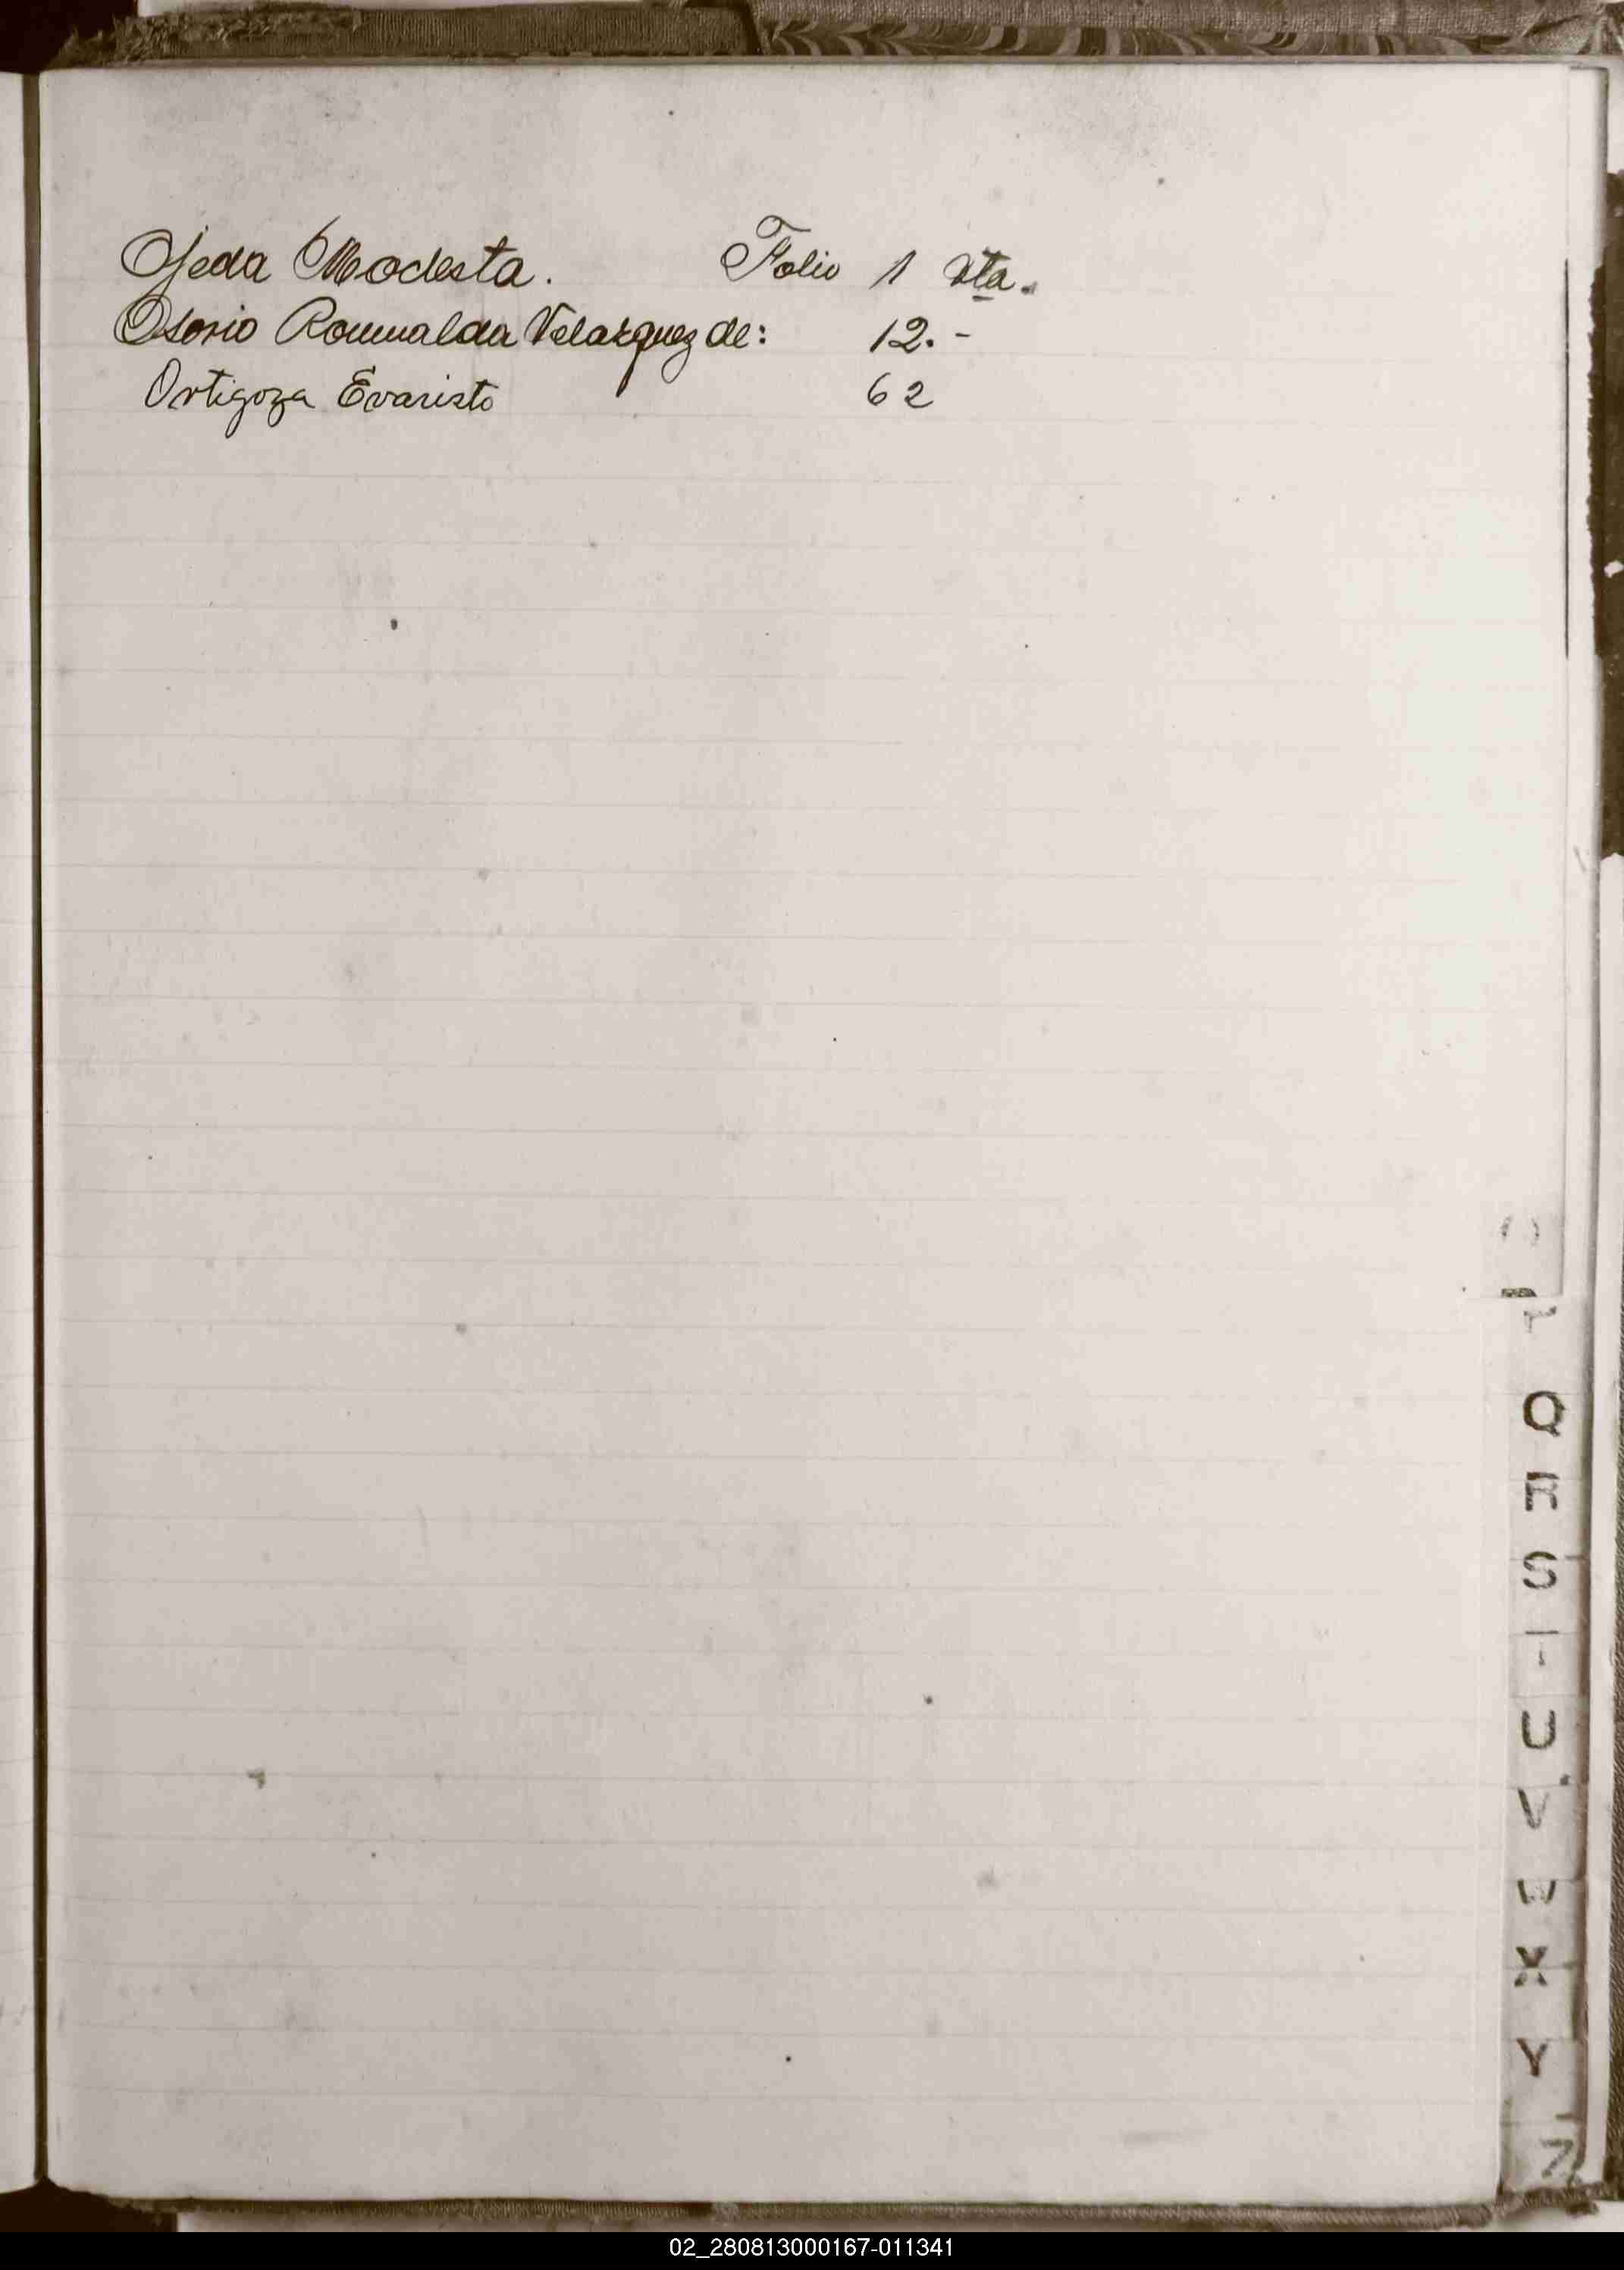 Ojeda Modesta. Folio 1 vta.
Osorio Romualda Velazquez de: 12.-
Ortigoza Evaristo 62
O
P
Q
R
S
T
U
V
W
X
Y
Z
02_280813000167-011341